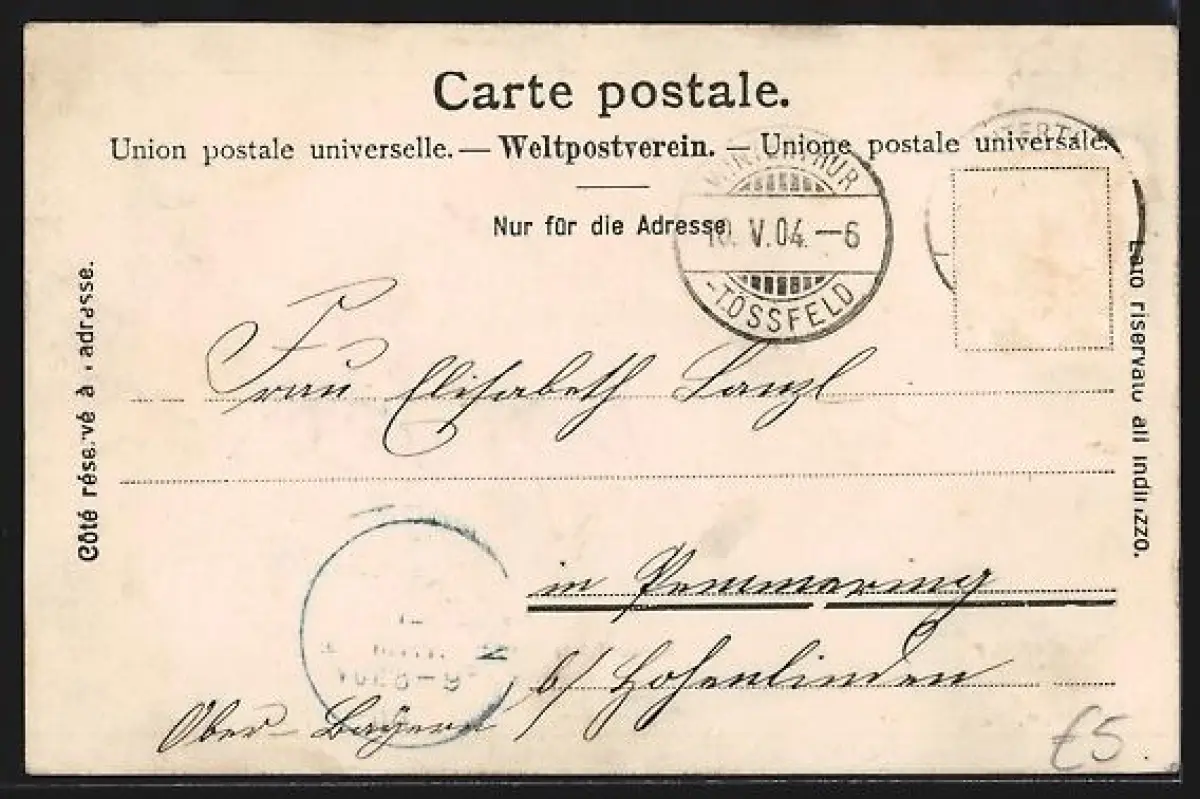 Carte postale.
Union postale universelle. — Weltpostverein. — Unione postale universale.
Nur für die Adresse
WINTERTHUR
10. V. 04. — 6
- TÖSSFELD
Côté réservé à l'adresse.
Lato riservato all'indirizzo.
Frau Elisabeth Lanzl
in Pemmering
b/ Hohenlinden
Ober-Bayern
£5